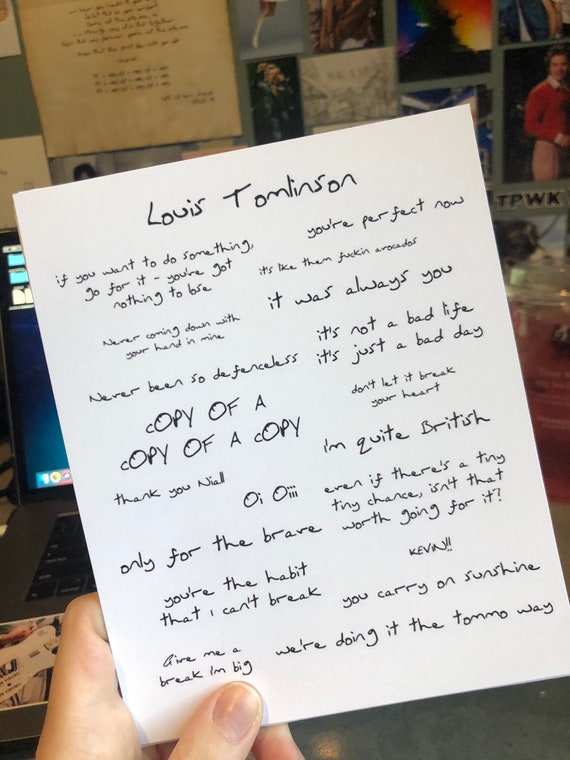 Louis Tomlinson
if you want to do something,
go for it - you're got
nothing to lose
you're perfect now
it's like them fuckin avocados
it was always you
Never coming down with
your hand in mine
it's not a bad life
it's just a bad day
Never been so defenceless
don't let it break
your heart
cOPY OF A
cOPY OF A cOPY
i'm quite British
thank you Niall
Oi Oiii
even if there's a tiny
tiny chance, isn't that
worth going for it?
only for the brave
KEVIN!!
you're the habit
that i can't break
you carry on sunshine
Give me a
break i'm big
we're doing it the tommo way
TPWK